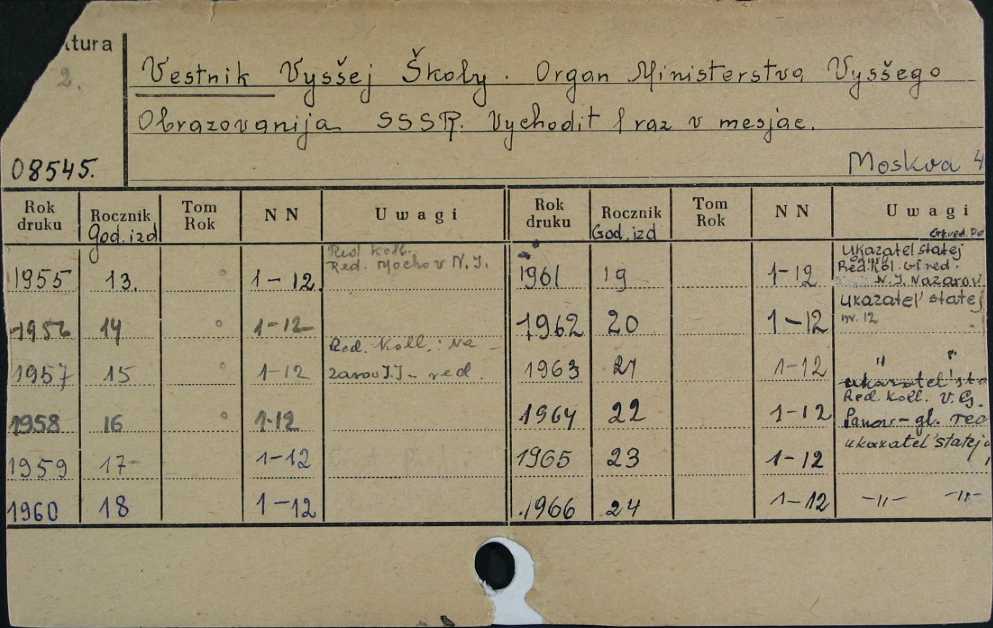 tura
2.
Vestnik Vysšej Školy. Organ Ministerstva Vysšego
Obrazovanija SSSR. Vychodit 1 raz v mesjac.
08545.
Moskva 4
Rok druku Rocznik Tom Rok N N Uwagi Rok druku Rocznik Tom Rok N N Uwagi
God. izd God. izd
1955 13. 1-12 Red. Koll. Red. Mochov N.I. 1961 19 1-12 Ukazatel statej Red. Kol. Gl. red. N.I. Nazarov
1956 14 1-12 1962 20 1-12 Ukazatel' statej nr. 12
1957 15 1-12 Red. Koll.: Nazarov I.I. - red. 1963 21 1-12 " "
1958 16 1-12 1964 22 1-12 Red. Koll. V. G. Panov - gl. red
1959 17 1-12 1965 23 1-12 ukazatel' statej
1960 18 1-12 1966 24 1-12 -"- -"-